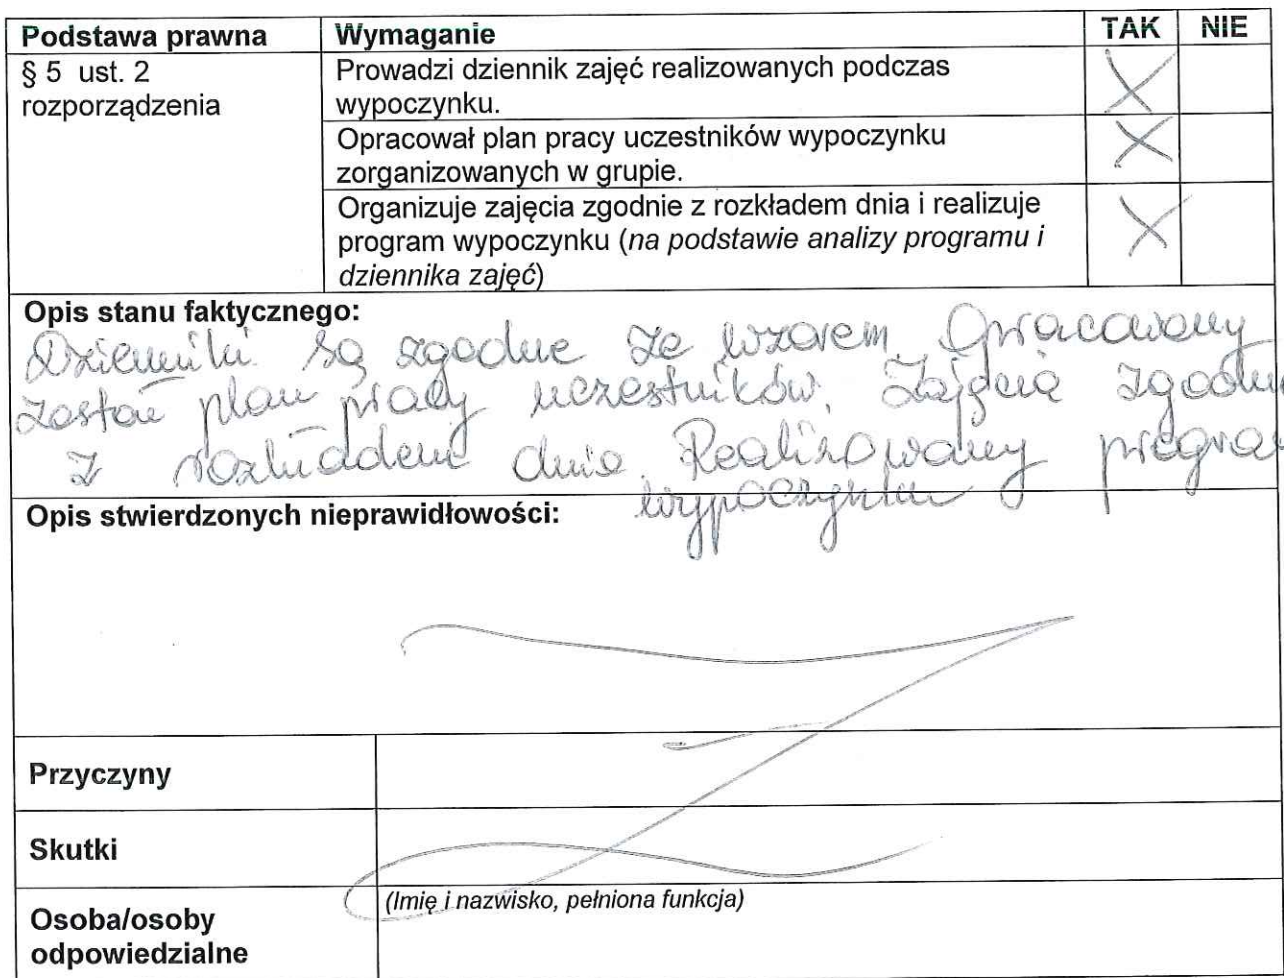 Podstawa prawna Wymaganie TAK NIE
§ 5 ust. 2 Prowadzi dziennik zajęć realizowanych podczas
rozporządzenia wypoczynku.
Opracował plan pracy uczestników wypoczynku
zorganizowanych w grupie.
Organizuje zajęcia zgodnie z rozkładem dnia i realizuje
program wypoczynku (na podstawie analizy programu i
dziennika zajęć)
Opis stanu faktycznego:
Dzienniki są zgodne ze wzorem. Opracowany
został plan pracy uczestników. Zajęcia zgodnie
z rozkładem dnia. Realizowany progra
wypoczynku
Opis stwierdzonych nieprawidłowości:
Przyczyny
Skutki
(Imię i nazwisko, pełniona funkcja)
Osoba/osoby
odpowiedzialne